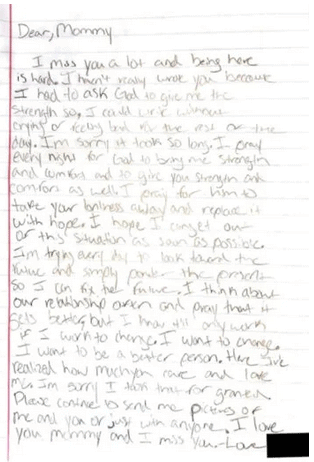 Dear, Mommy
I miss you a lot and being here
is hard. I haven't really wrote you because
I had to ask God to give me the
strength so, I could write without
crying or feeling bad for the rest of the
day. I'm sorry it took so long. I pray
every night for God to bring me strength
and comfort and to give you strength and
comfort as well. I pray for him to
take your loneliness away and replace it
with hope. I hope I can get out
of this situation as soon as possible.
I'm trying every day to look toward the
future and simply ponder the present
so I can fix the future. I think about
our relationship often and pray that it
gets better, but I know it'll only work
if I work to change. I want to change.
I want to be a better person. Here I've
realized how much you care and love
me. I'm sorry I took that for granted.
Please continue to send me pictures of
me and you or just with anyone. I love
you mommy and I miss you.-Love